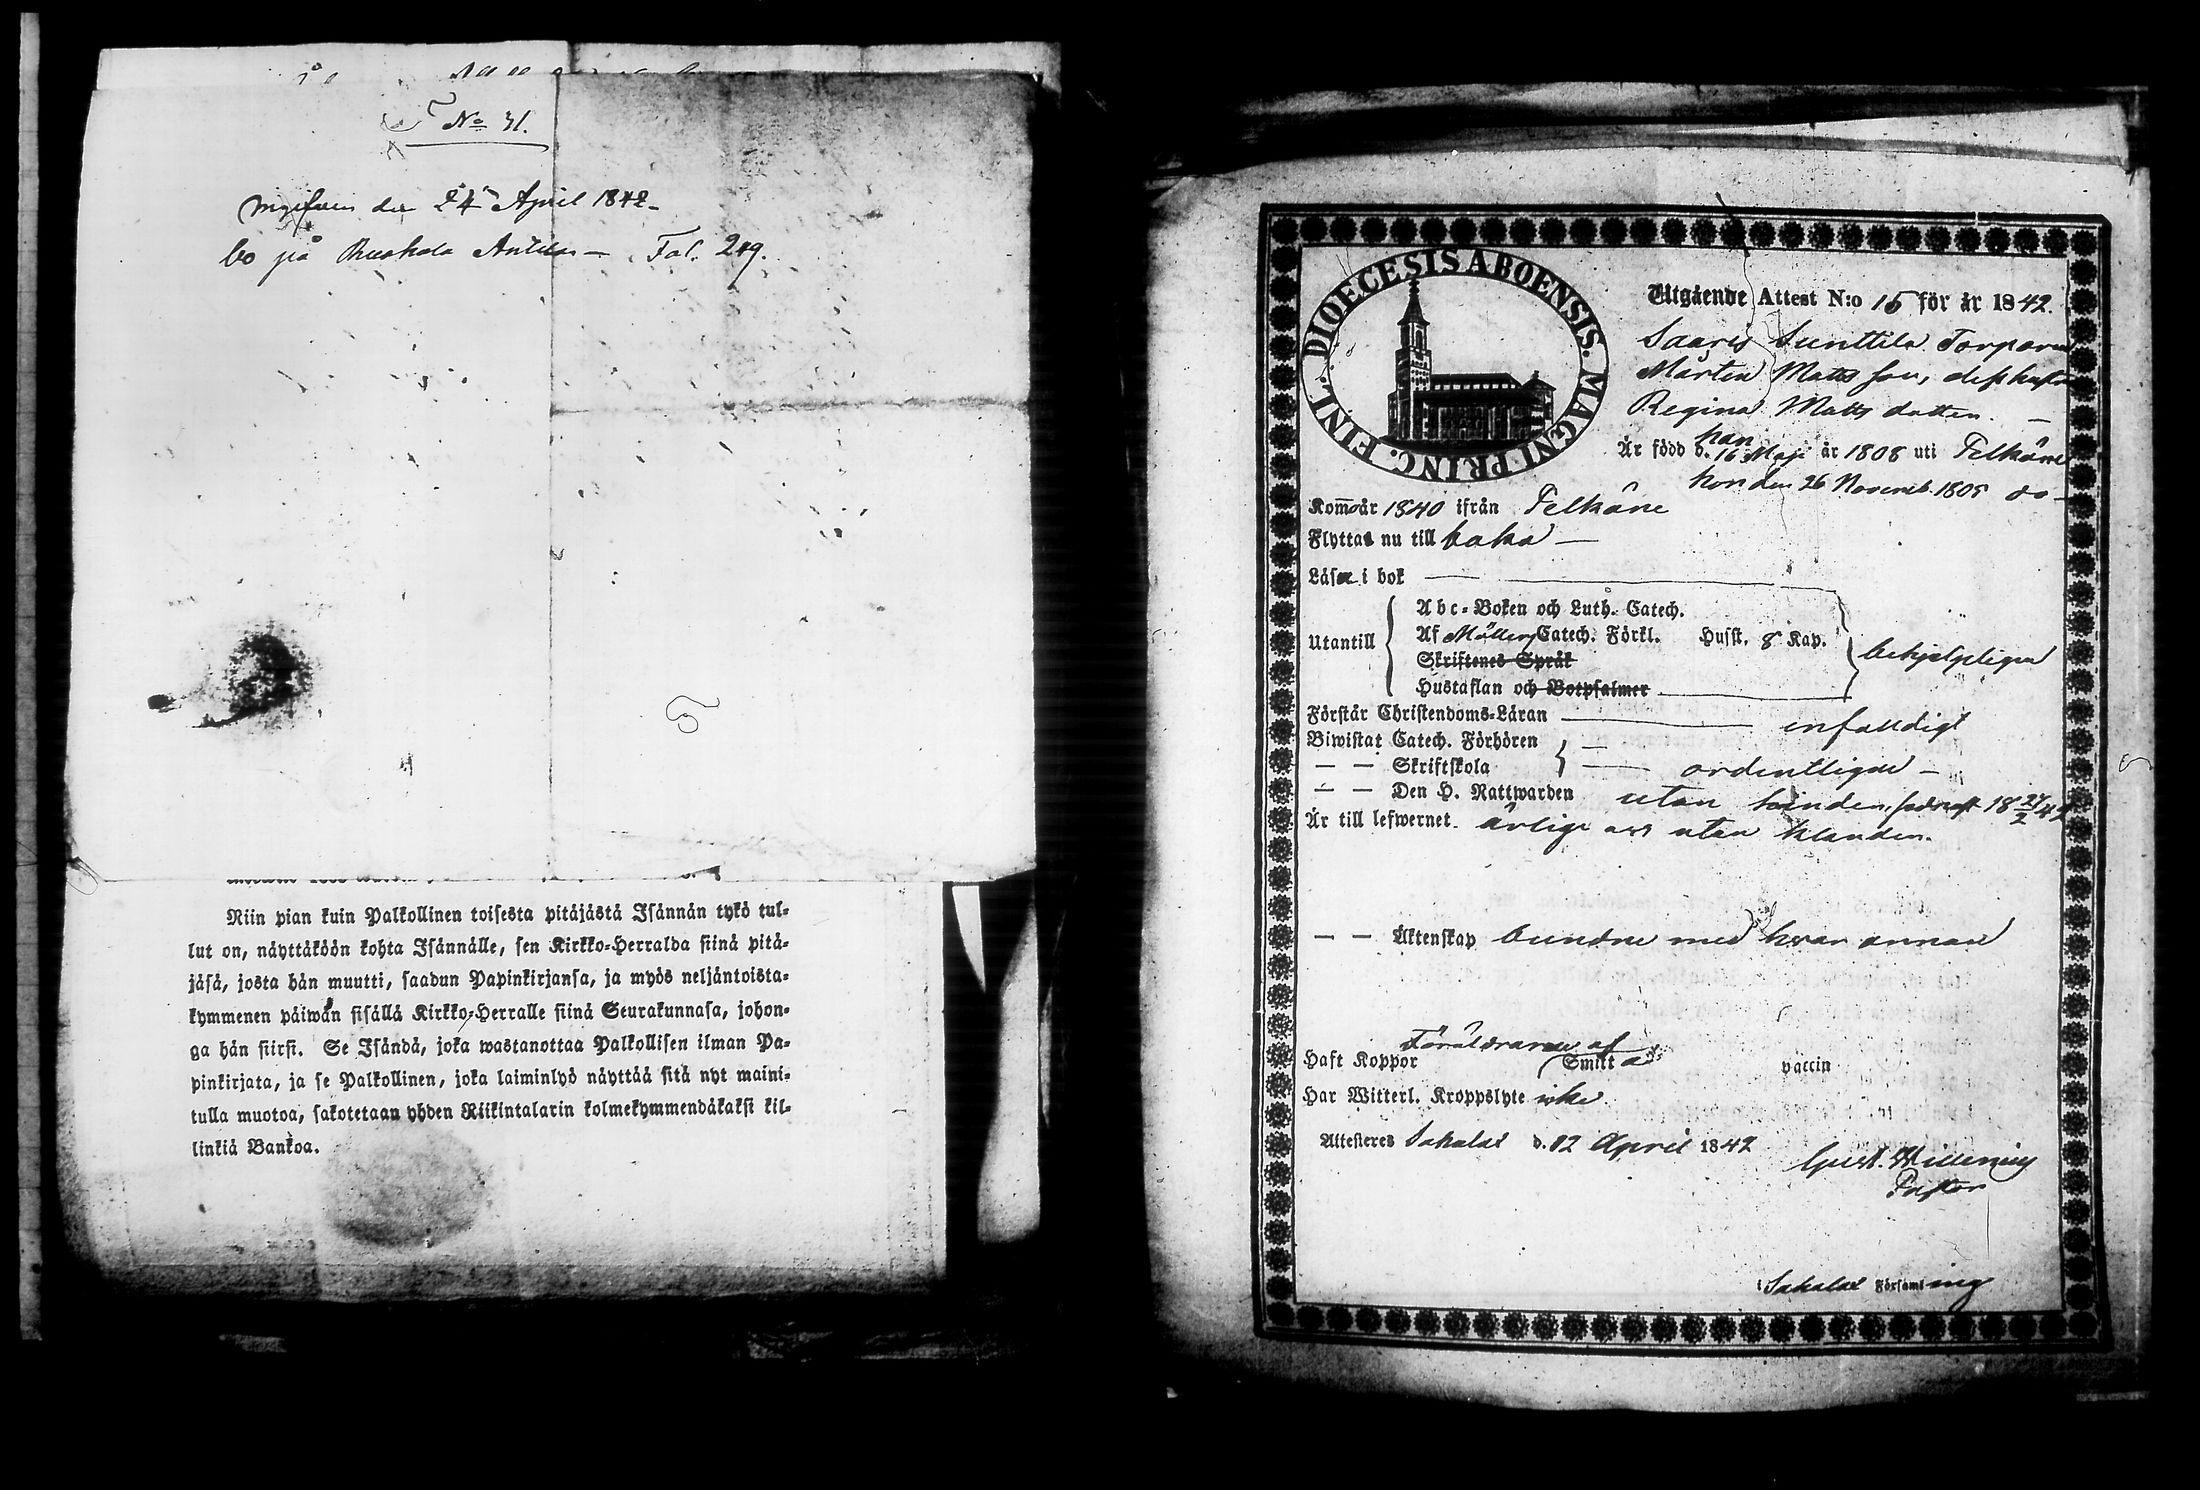 No 31.
Ingifven den 24 April 1842
bo på Ruokola Anttila — Fol. 249.
Niin pian kuin Palkollinen toisesta pitäjästä Isännän tykö tul-
lut on, näyttäköön kohta Isännälle, sen Kirkko-Herralda siinä pitä-
jäsä, josta hän muutti, saadun Papinkirjansa, ja myös neljäntoista-
kymmenen päiwän sisällä Kirkko-Herralle siinä Seurakunnasa, johon-
ga hän siirsi. Se Isändä, joka wastanottaa Palkollisen ilman Pa-
pinkirjata, ja se Palkollinen, joka laiminlyö näyttää sitä nyt maini-
tulla muotoa, sakotetaan yhden Riikintalarin kolmekymmendäkaksi kil-
linkiä Bankoa.
DIOECESIS ABOENSIS. MAGNI PRINC. FINL.
Utgående Attest N:o 15 för år 1842.
Saaris Sunttila Torparen
Mårten Matts son, dess hustru
Regina Matts dotter. —
han
Är född d. 16 Maji år 1808 uti Pelkäne
hon den 26 Novemb. 1805 do —
Kom̅o år 1840 ifrån Pelkäne
Flyttas nu till baka —
Läser i bok —
Abc-Boken och Luth. Catech.
Utantill Af Möllers Catech. Förkl. Husst. 8 Kap. behjelpligen
Skriftenes Språk
Hustaflan och Botpsalmer
Förstår Christendoms-Läran — enfaldigt
Biwistat Catech. Förhören —
— — Skriftskola — ordentligen —
— — Den H. Nattwarden utan hinder, sednast 18 27/2 42
Är till lefwernet ärlige och utan klander.
— — Äktenskap bundne med hvar annan
Föräldrarne af
Haft Koppor Smitt a vaccin
Har Witterl. Kroppslyte icke.
Attesteres Sahalax d. 12 April 1842
Pastor
i Sahalax Församling